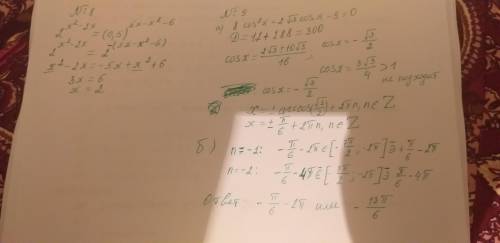 №8
2^{x²-2x} = (0,5)^{5x-x²-6}
2^{x²-2x} = 2^{-(5x-x²-6)}
x²-2x = -5x+x²+6
3x=6
x=2
№9
а) 8 cos²x - 2√3 cosx - 9 = 0
D = 12+288 = 300
cosx = (2√3 ± 10√3)/16 ; cosx = -√3/2
cosx = 3√3/4 > 1
не подходит
cosx = -√3/2
x = ± arccos(√3/2) + 2πn, n∈Z
x = ± π/6 + 2πn, n∈Z
б) n=-2: -π/6 - 2π ∈ [-7π/2, -2π] ∌ +π/6 - 2π
n=-2: -π/6 - 4π ∈ [-7π/2, -2π] ∌ π/6 - 4π
Ответ = -π/6 - 2π или -13π/6